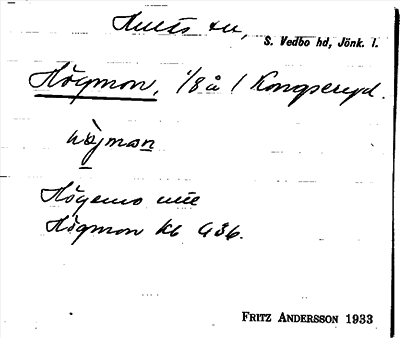 Hults sn,
S. Vedbo hd, Jönk. l.
Högmon, 1/8 å 1 Kongseryd.
högmon
Högemo
Högmon Kb 936.
FRITZ ANDERSSON 1933